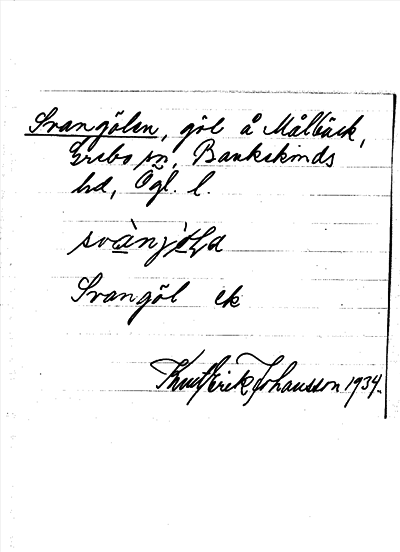 Svangölen, göl å Målbäck,
Grebo sn, Bankekinds
hd, Ögl. l.
svàngjö̀ḷa
Svangöl ek
Knut Erik Johansson 1934.